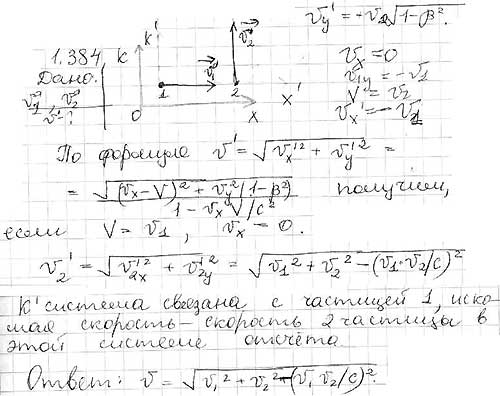 v⃗y' = -v₂√1-β².
1.384
Дано:
v⃗₁, v⃗₂
v' - ?
K
K'
v⃗₁
v⃗₂
1
2
O
x
x'
vx = 0
v₁y = -v₁
V = v₂
vx' = -v₁
По формуле v' = √vx'² + vy'² =
= √(vx-V)² + vy²(1-β²) / 1 - vxV/c² получим,
если V = v₁, vx = 0.
v₂' = √v₂x'² + v₂y'² = √v₁² + v₂² - (v₁·v₂/c)²
K' система связана с частицей 1, иско-
мая скорость - скорость 2 частицы в
этой системе отсчёта
Ответ: v = √v₁² + v₂² - (v₁ v₂/c)².